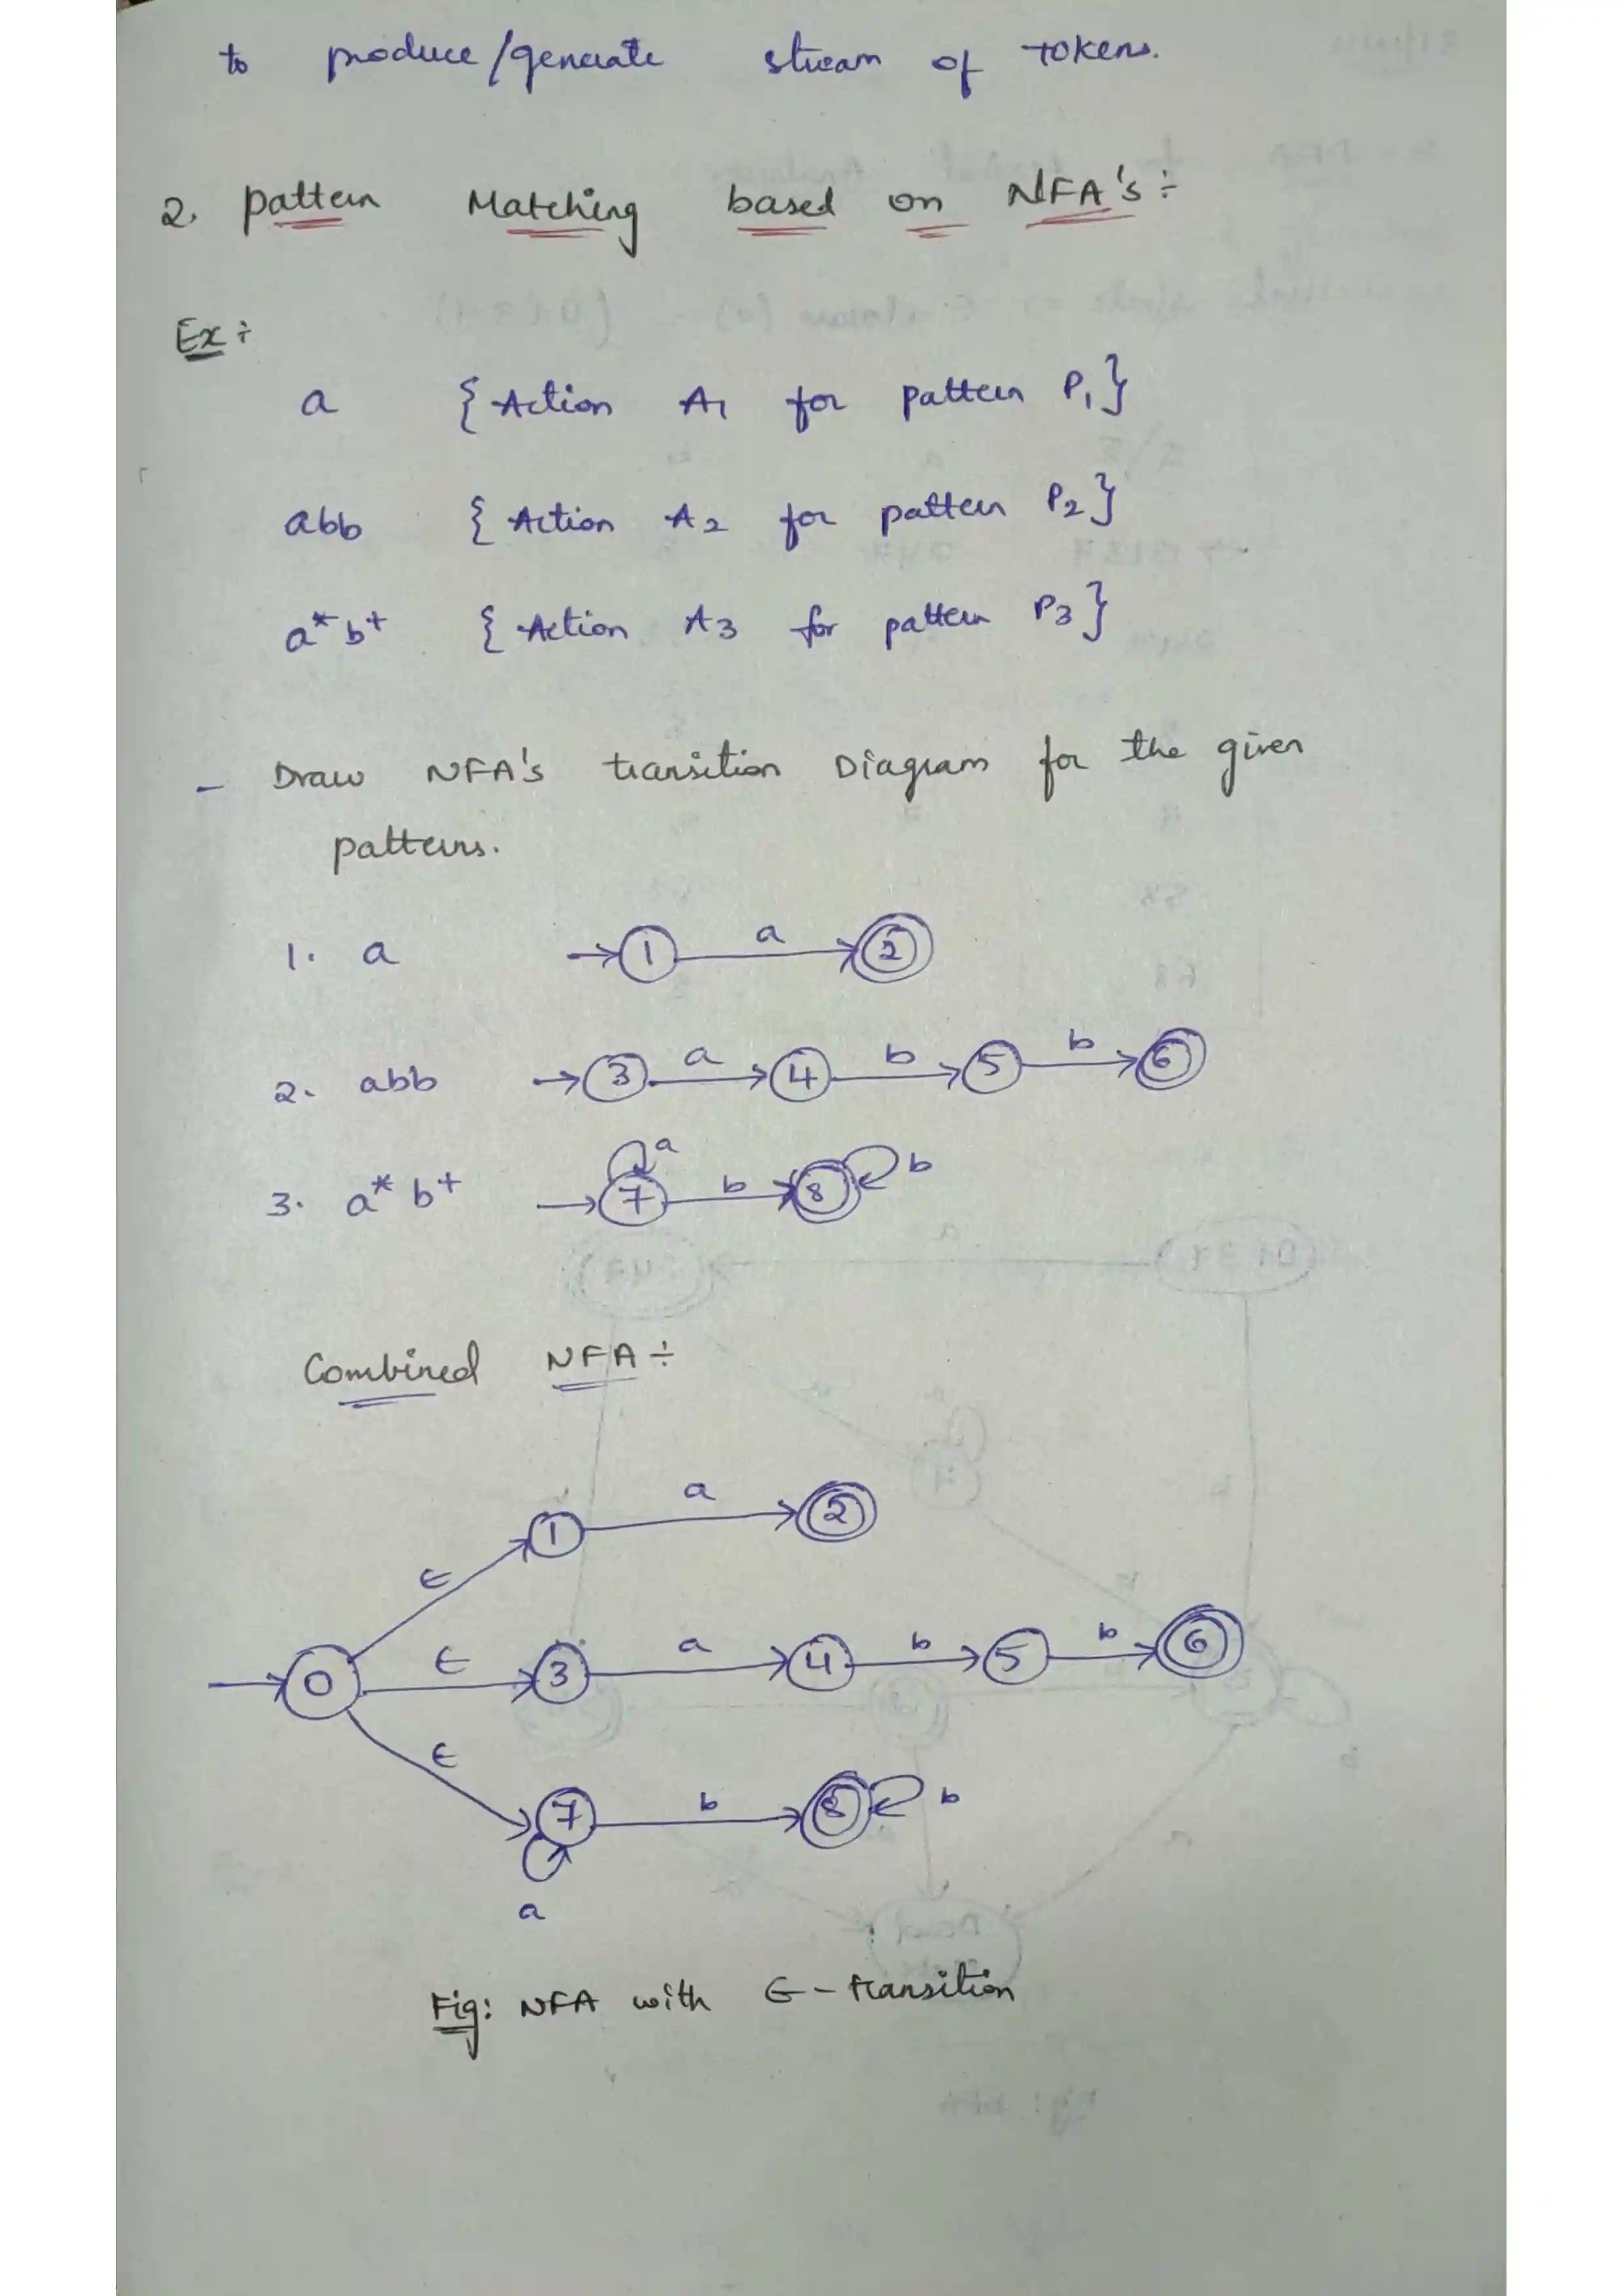 to produce/generate stream of tokens.
2. pattern Matching based on NFA's ÷
Ex ÷
a { Action A1 for pattern P1}
abb { Action A2 for pattern P2}
a* b+ { Action A3 for pattern P3}
- Draw NFA's transition Diagram for the given
patterns.
1. a → 1 a 2
2. abb → 3 a 4 b 5 b 6
a
3. a* b+ → 7 b 8 b
Combined NFA ÷
a
1 2
ε
0 ε 3 a 4 b 5 b 6
ε
7 b 8 b
a
Fig: NFA with ε - transition